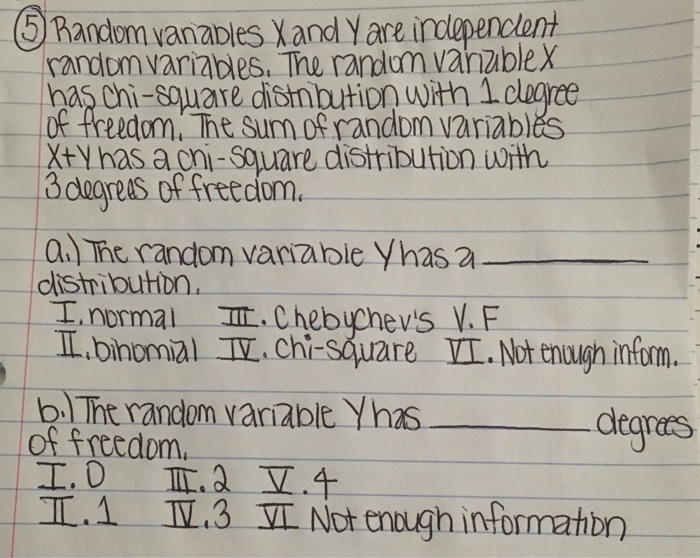 5 Random variables X and Y are independent
random variables. The random variable X
has chi-square distribution with 1 degree
of freedom. The sum of random variables
X+Y has a chi-square distribution with
3 degrees of freedom.
a.) The random variable Y has a ________
distribution.
I. normal III. Chebychev's V. F
II. binomial IV. Chi-square VI. Not enough inform.
b.) The random variable Y has ________ degrees
of freedom.
I. 0 III. 2 V. 4
II. 1 IV. 3 VI Not enough information